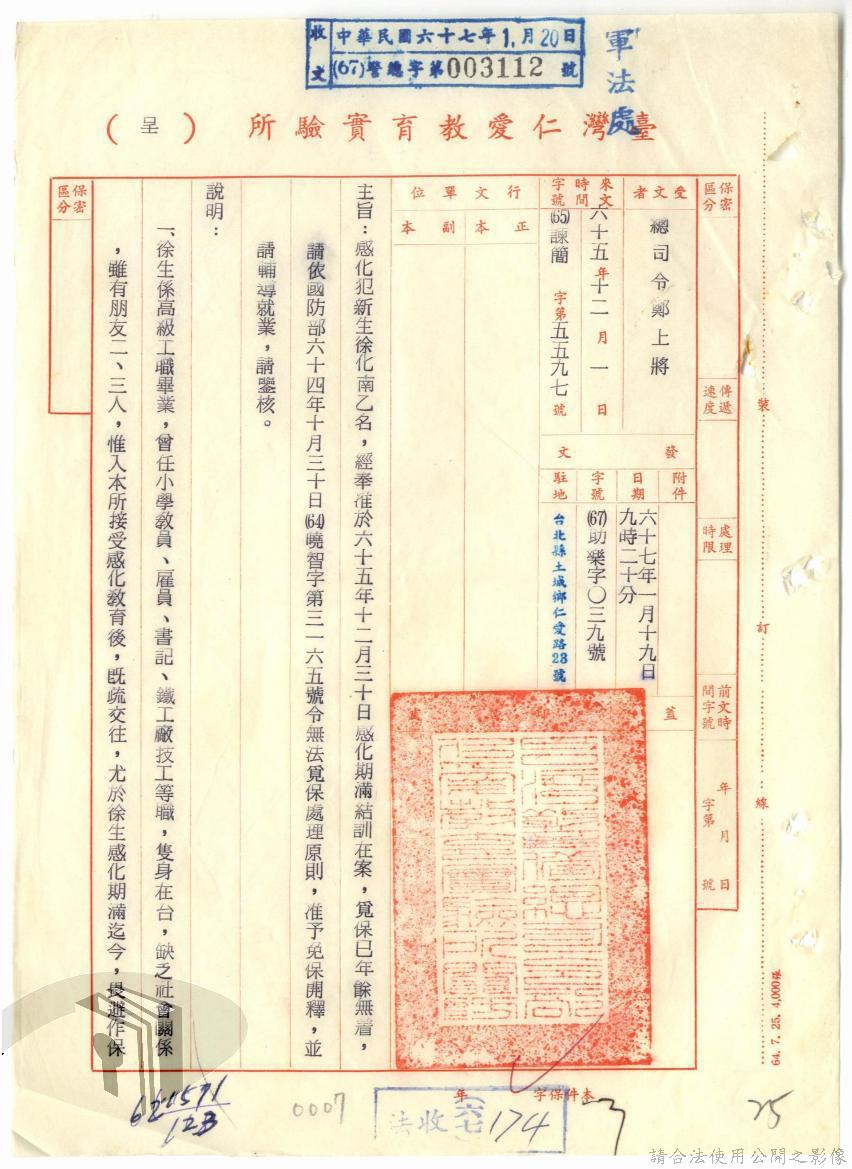 收文
中華民國六十七年1.月20日
(67)警總字第003112號
軍法處
臺灣仁愛教育實驗所（呈）
保密區分
傳遞速度
處理時限
前文時間字號
年月日
字第號
受文者
總司令鄭上將
來文時間字號
六十五年十二月一日
(65)諫簡字第五五九七號
行文單位
正本
副本
發文
附件
日期
六十七年一月十九日
九時二十分
字號
(67)助樂字〇三九號
駐地
台北縣土城鄉仁愛路23號
蓋
主旨：感化犯新生徐化南乙名，經奉准於六十五年十二月三十日感化期滿結訓在案，覓保已年餘無着，
請依國防部六十四年十月三十日(64)曉智字第三一六五號令無法覓保處理原則，准予免保開釋，並
請輔導就業，請鑒核。
說明：
一、徐生係高級工職畢業，曾任小學教員、雇員、書記、鐵工廠技工等職，隻身在台，缺乏社會關係
，雖有朋友二、三人，惟入本所接受感化教育後，既疏交往，尤於徐生感化期滿迄今，畏避作保
保密區分
裝
訂
線
64. 7. 25. 4,000張
本件保字
年
(六七)
法收174
0007
671571
123
25
請合法使用公開之影像